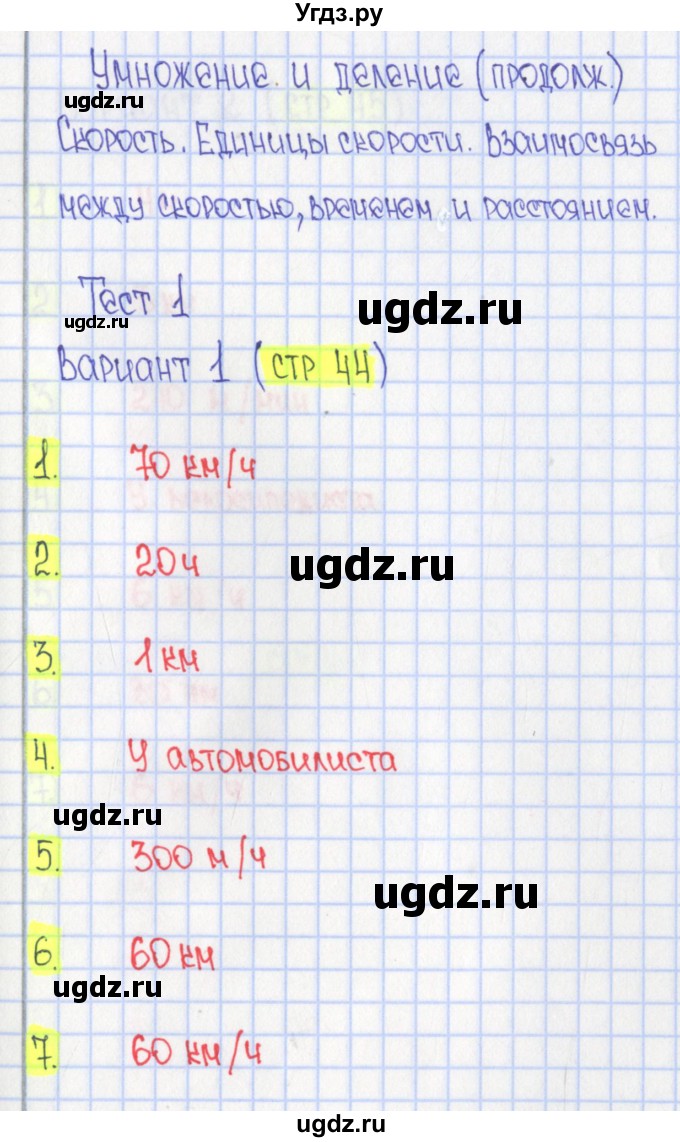 Угдз.ру
Умножение и деление (продолж.)
ugdz.ru
Скорость. Единицы скорости. Взаимосвязь
между скоростью, временем и расстоянием.
Тест 1
ugdz.ru
ugdz.ru
Вариант 1 (стр 44)
1. 70 км/ч
2. 20ч
ugdz.ru
3. 1 км
4. У автомобилиста
ugdz.ru
5. 300 м/ч
ugdz.ru
6. 60 км
ugdz.ru
7. 60 км/ч
ugdz.ru